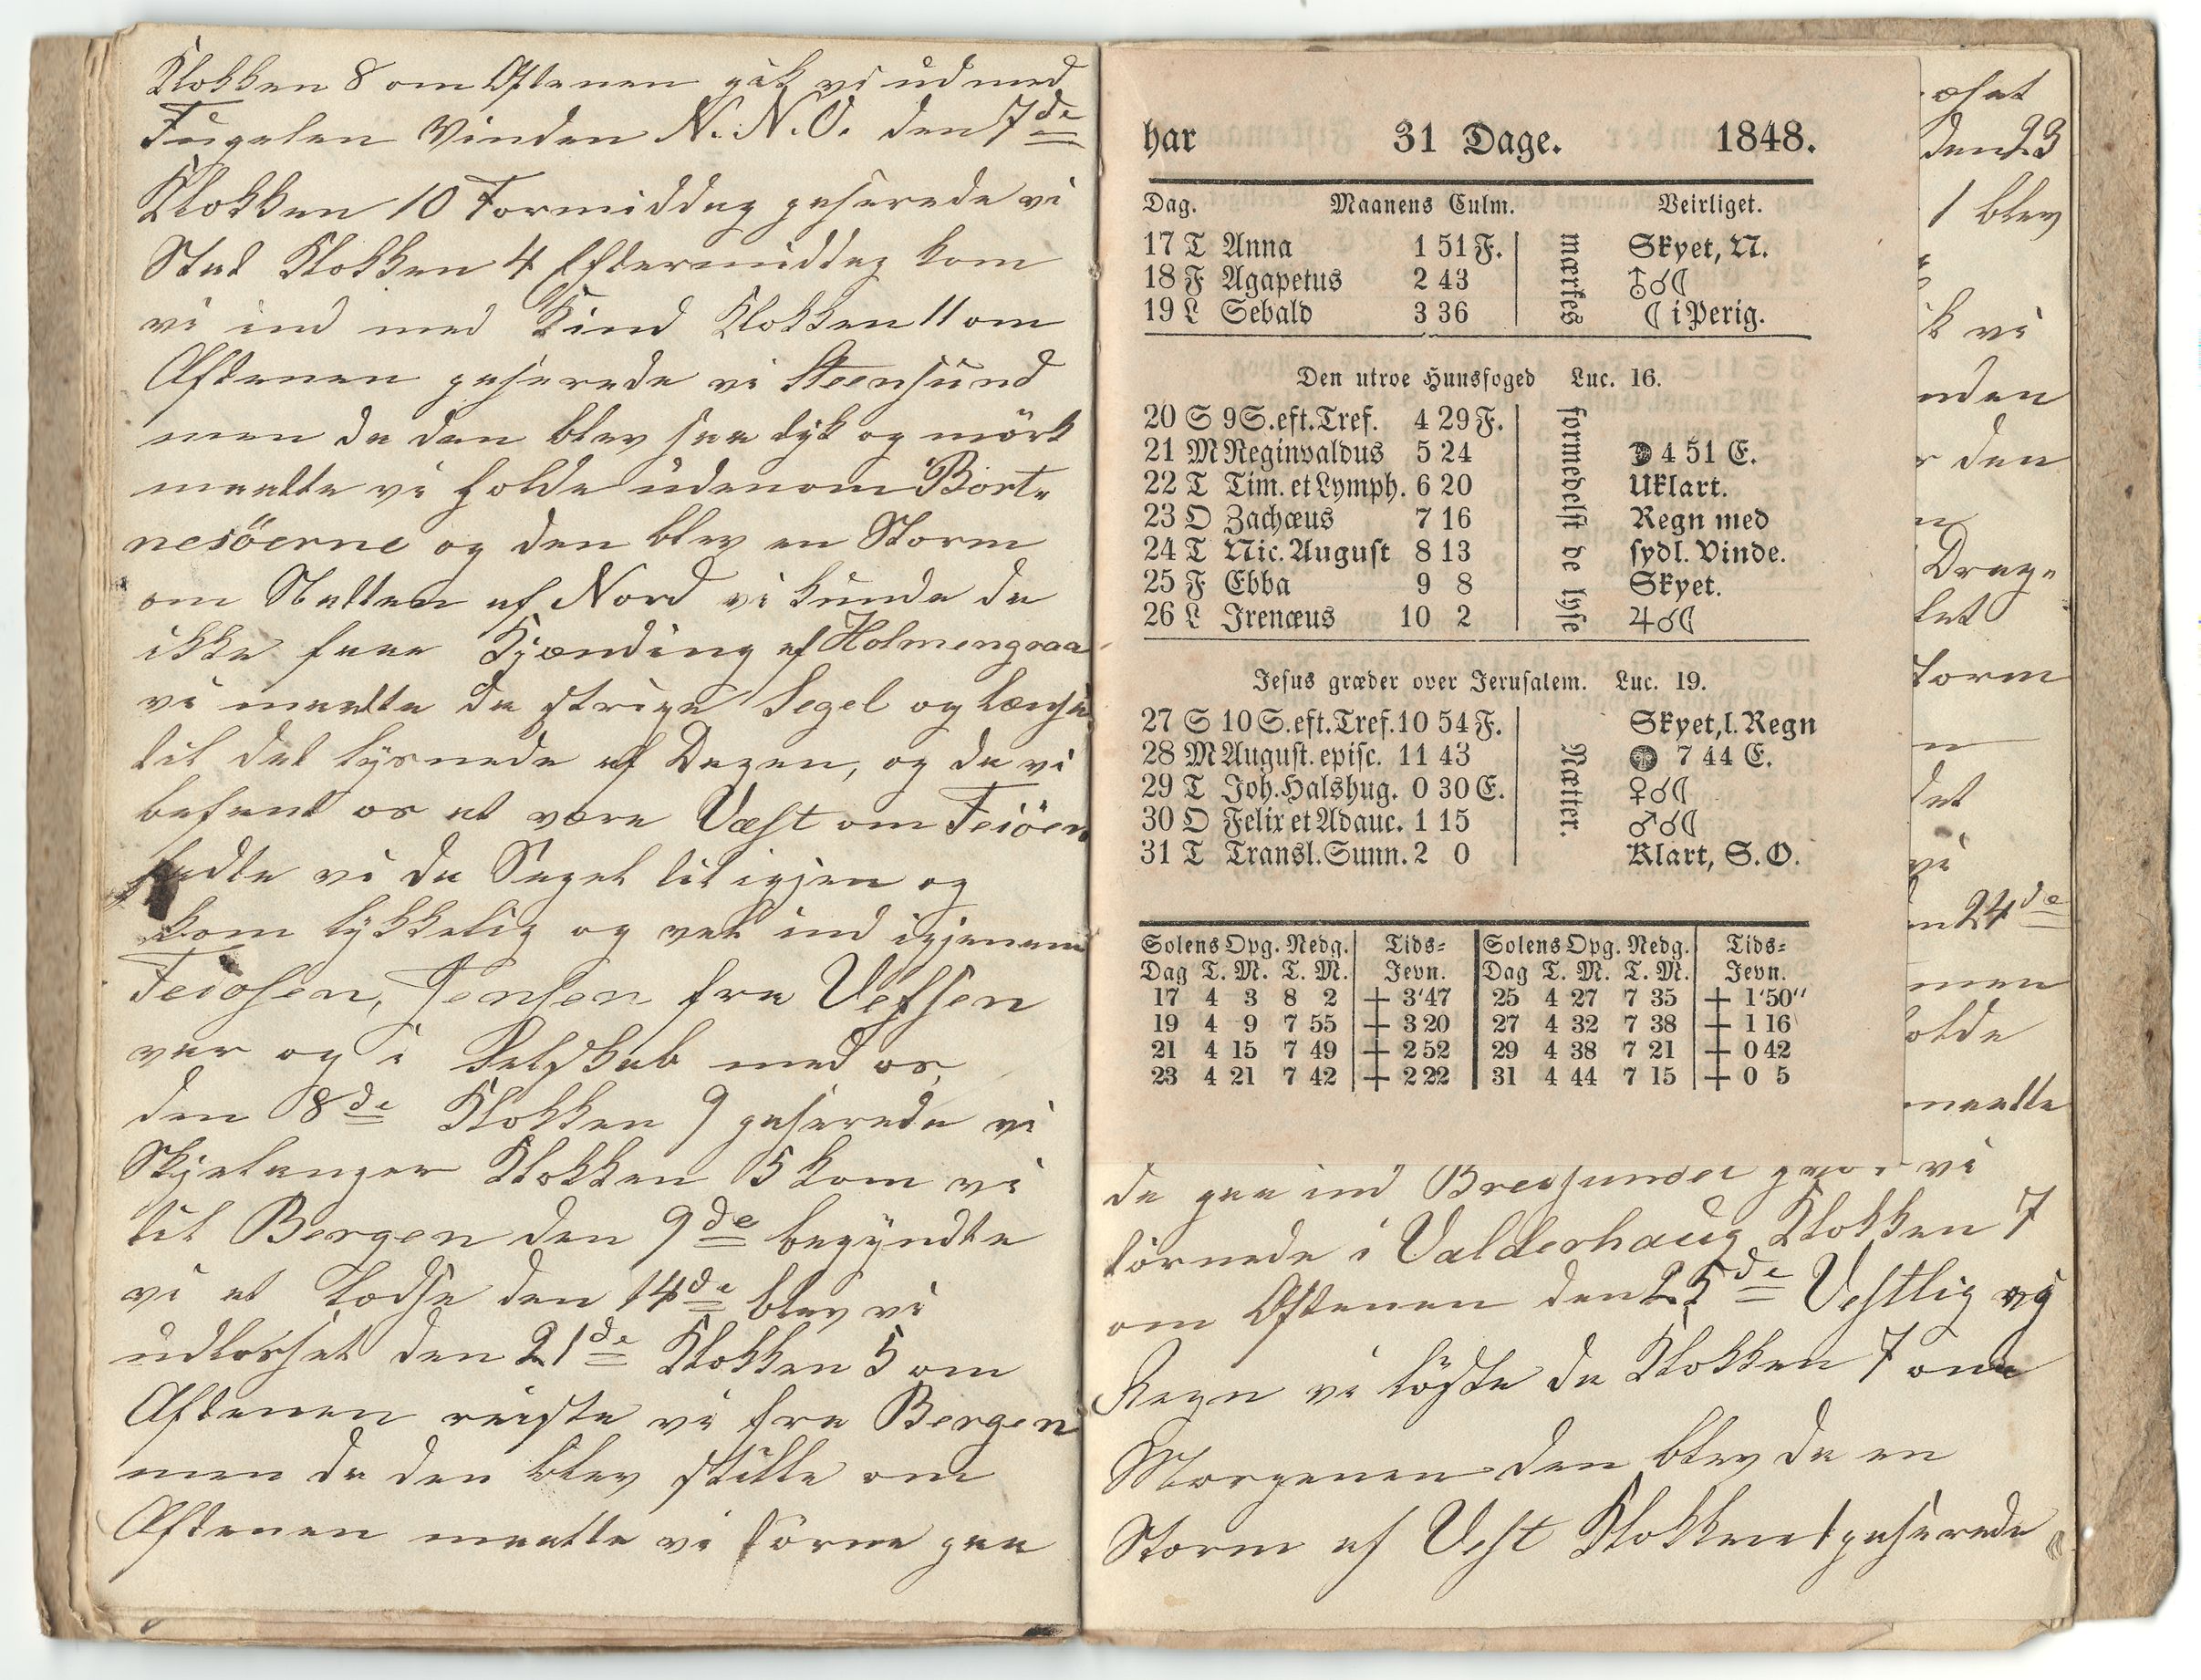 Klokken 8 om Aftenen gik vi ud med
Fugelen Vinden N. N. O. den 7de
Klokken 10 Formiddag paserede vi
Stat Klokken 4 Eftermiddag kom
vi ind med Kind Klokken 11 om
Aftenen paserede vi Steensund
men da den blev saa tyk og mörk
maatte vi holde udenom Bort„
nesöerne og den blev en Storm
om Natten af Nord vi kunde da
ikke faae Kjænding af Holmengraa
vi maatte da strige Segel og lænse
til det lysnede af Dagen, og da vi
befant os at være Væst om Feiöen
sadte vi da Seget til igjen og
kom lykkelig og vel ind igjenem
Feiosen, Jensen fra Vefsen
var og i Selskab med os,
den 8de Klokken 9 paserede vi
Skjelanger Klokken 5 kom vi
til Bergen den 9de begyndte
vi at lodse den 14de blev vi
udlosset den 21de Klokken 5 om
Aftenen reiste vi fra Bergen
men da den blev stille om
Aftenen maatte vi törne paa
har 31 Dage. 1848.
Dag. Maanens Culm. Veirliget.
17 T Anna 1 51 F. Skyet, N.
18 F Agapetus 2 43 ♁☌☾
19 L Sebald 3 36 ☾ i Perig.
mærkes
Den utroe Huusfoged Luc. 16.
20 S 9 S. eft. Tref. 4 29 F.
21 M Reginvaldus 5 24 4 51 E.
22 T Tim. et Lymph. 6 20 Uklart.
23 O Zachæus 7 16 Regn med
24 T Nic. August 8 13 sydl. Vinde.
25 F Ebba 9 8 Skyet.
26 L Irenæus 10 2 ♃☌☾
formedelst de lyse
Jesus græder over Jerusalem. Luc. 19.
27 S 10 S. eft. Tref. 10 54 F. Skyet, l. Regn
28 M August. episc. 11 43 7 44 E.
29 T Joh. Halshug. 0 30 E. ♀☌☾
30 O Felix et Adauc. 1 15 ♂☌☾
31 T Transl. Sunn. 2 0 Klart, S. O.
Nætter.
Solens Opg. Nedg. Tids- Solens Opg. Nedg. Tids-
Dag T. M. T. M. Jevn. Dag T. M. T. M. Jevn.
17 4 3 8 2 + 3'47 25 4 27 7 35 + 1'50''
19 4 9 7 55 + 3 20 27 4 32 7 38 + 1 16
21 4 15 7 49 + 2 52 29 4 38 7 21 + 0 42
23 4 21 7 42 + 2 22 31 4 44 7 15 + 0 5
den 23
1 blev
k vi
nden
r den
Drag„
let
torm
det
vi
n 24de
men
olde
maatte
da gaa ind Breisundet hvor vi
törnede i Valderhaug Klokken 7
om Aftenen den 25de Vestlig og
Regn vi löste da Klokken 7 om
Morgenen den blev da en
Storm af Vest Klokken 1 paserede